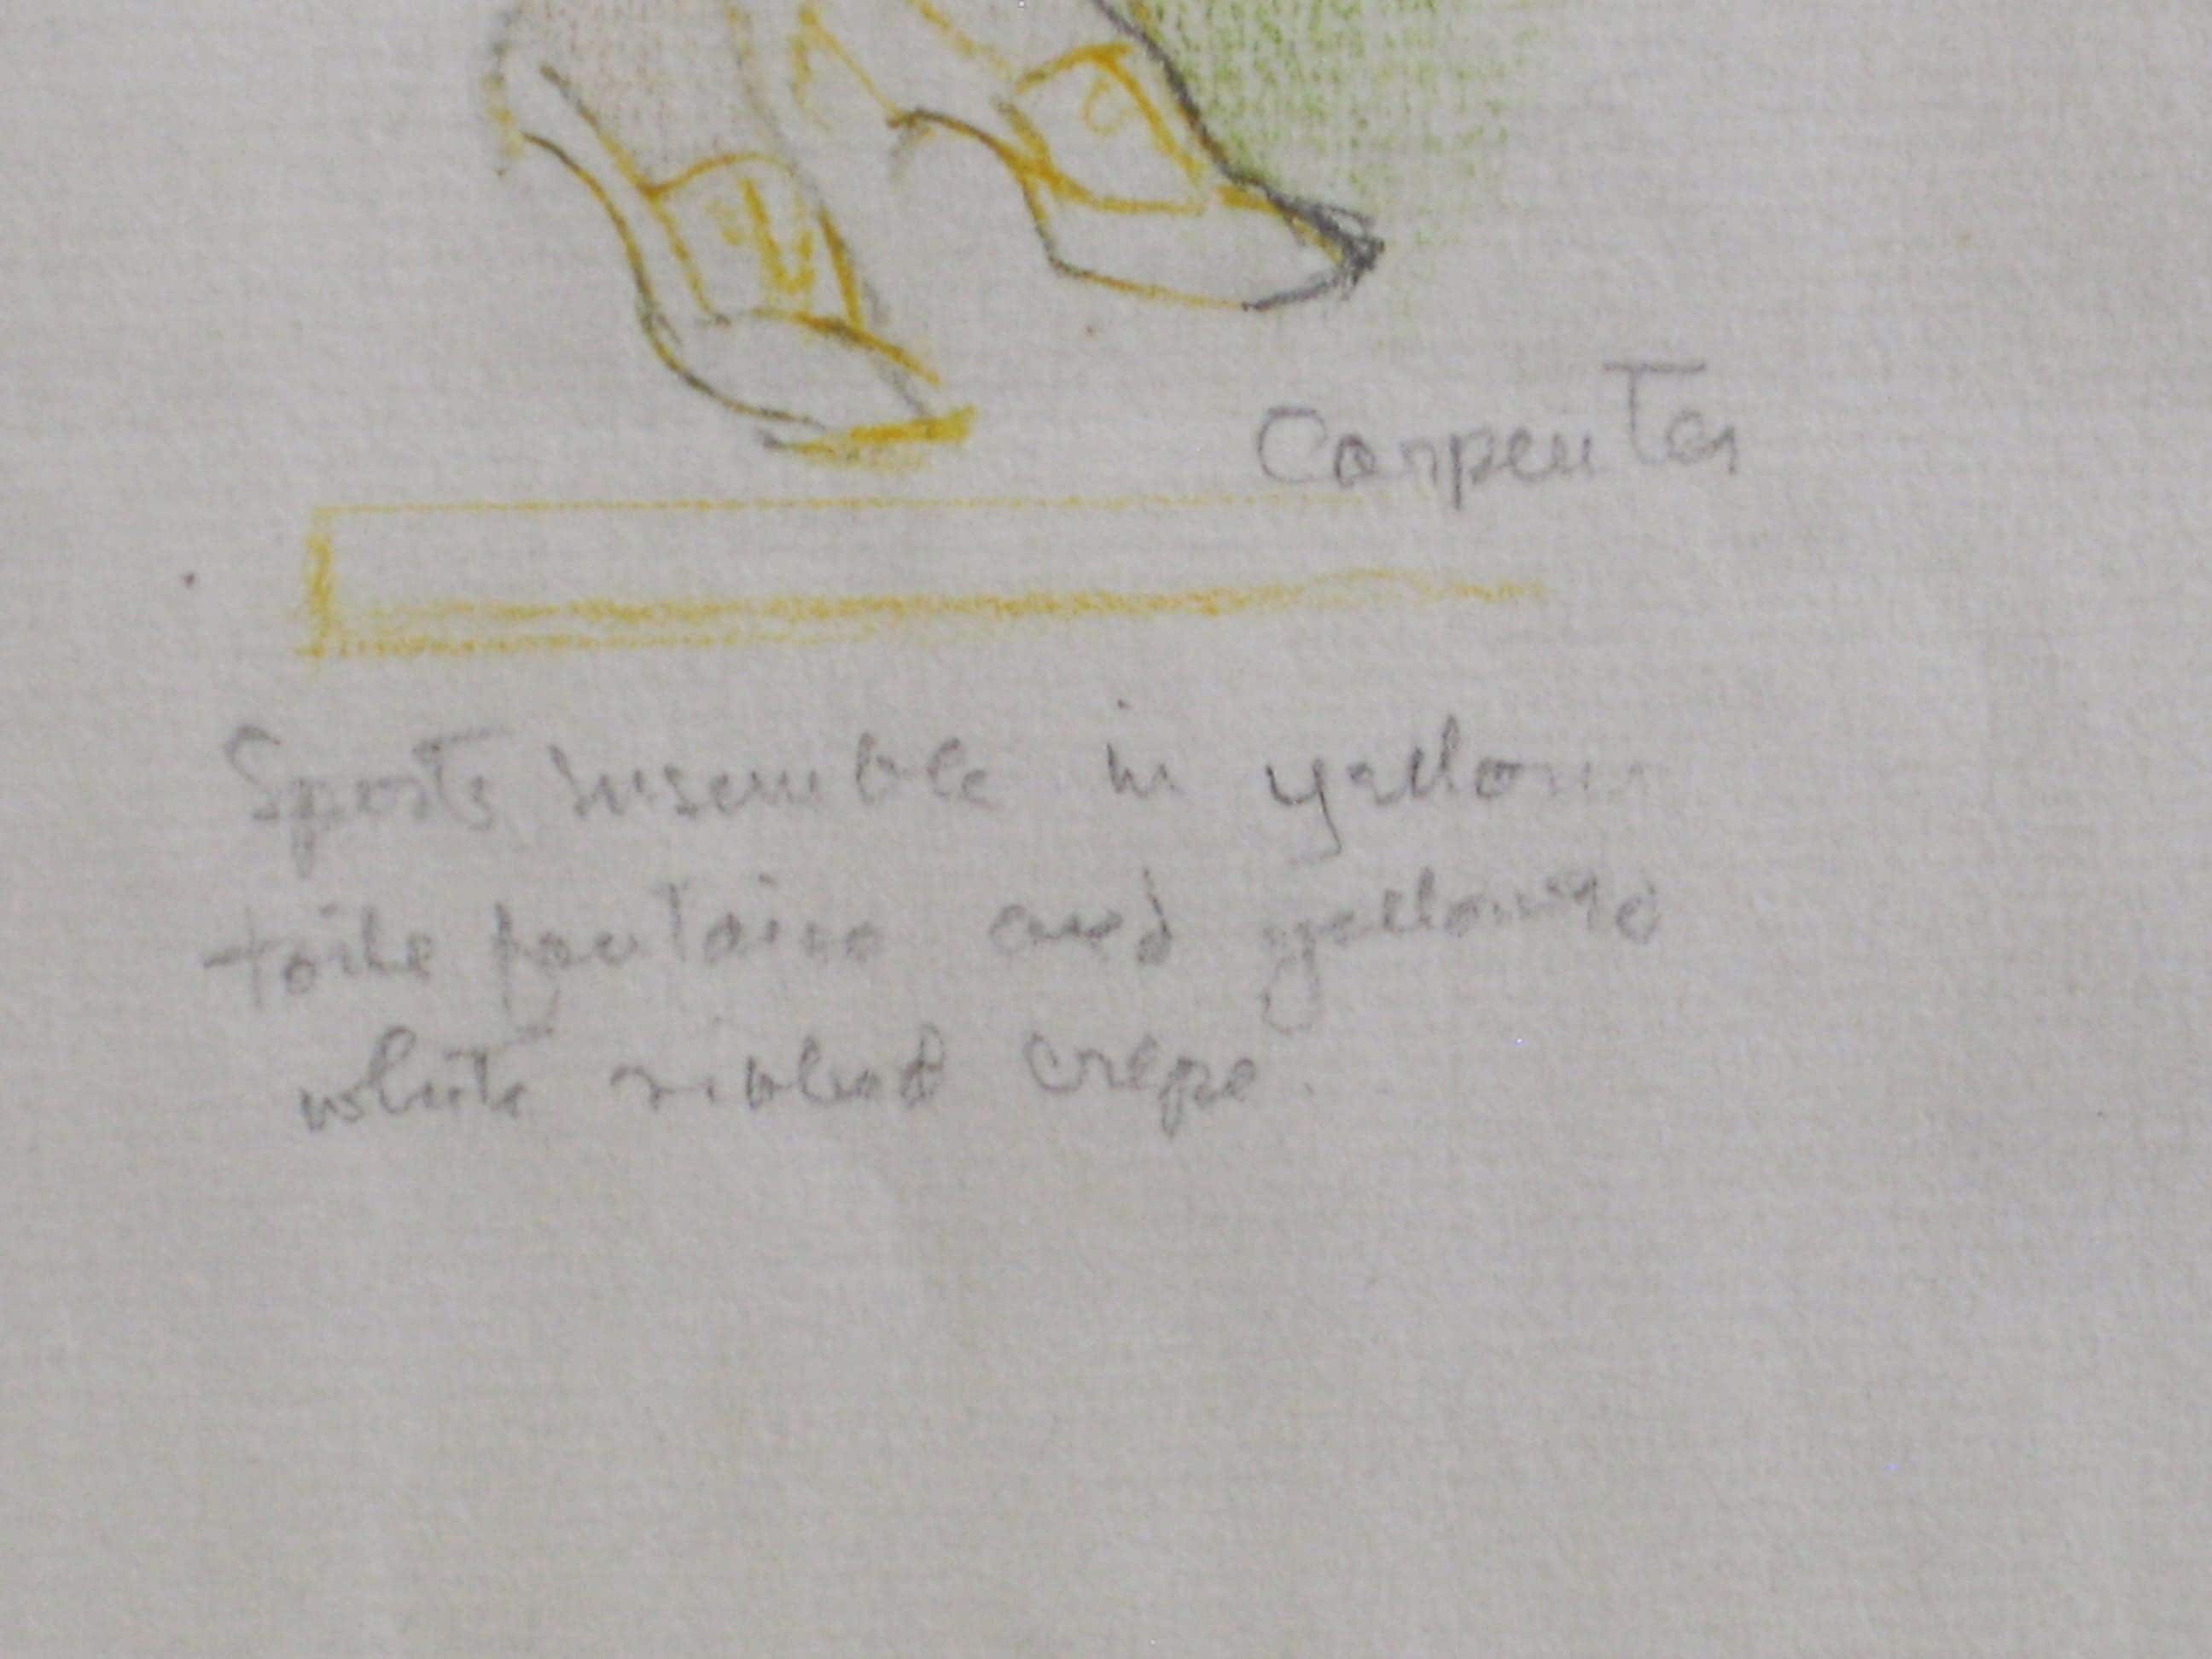 Carpenter
Sports ensemble in yellow
toile and
white ribbed crepe.